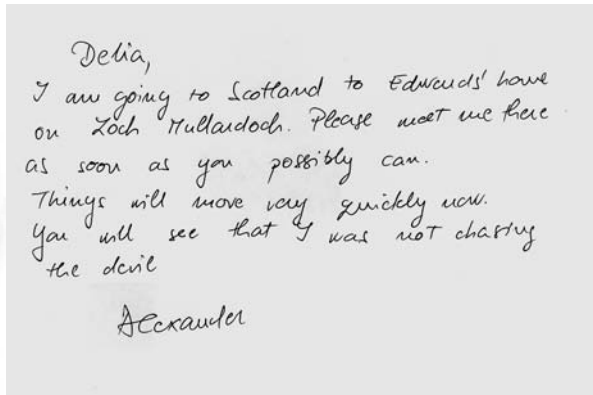 Delia,
I am going to Scotland to Edwards' home
on Loch Mullardoch. Please meet me there
as soon as you possibly can.
Things will move very quickly now.
You will see that I was not chasing
the devil
Alexander